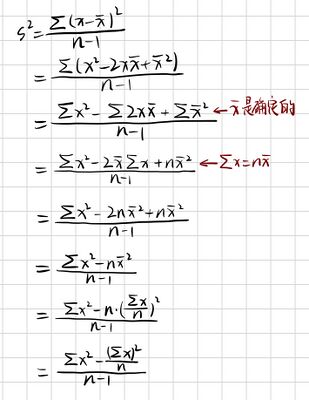 s² = Σ(x-x̄)² / n-1
= Σ(x²-2xx̄+x̄²) / n-1
= Σx² - Σ2xx̄ + Σx̄² / n-1 ← x̄是确定的
= Σx² - 2x̄Σx + nx̄² / n-1 ← Σx=nx̄
= Σx² - 2nx̄² + nx̄² / n-1
= Σx² - nx̄² / n-1
= Σx² - n·(Σx/n)² / n-1
= Σx² - (Σx)²/n / n-1